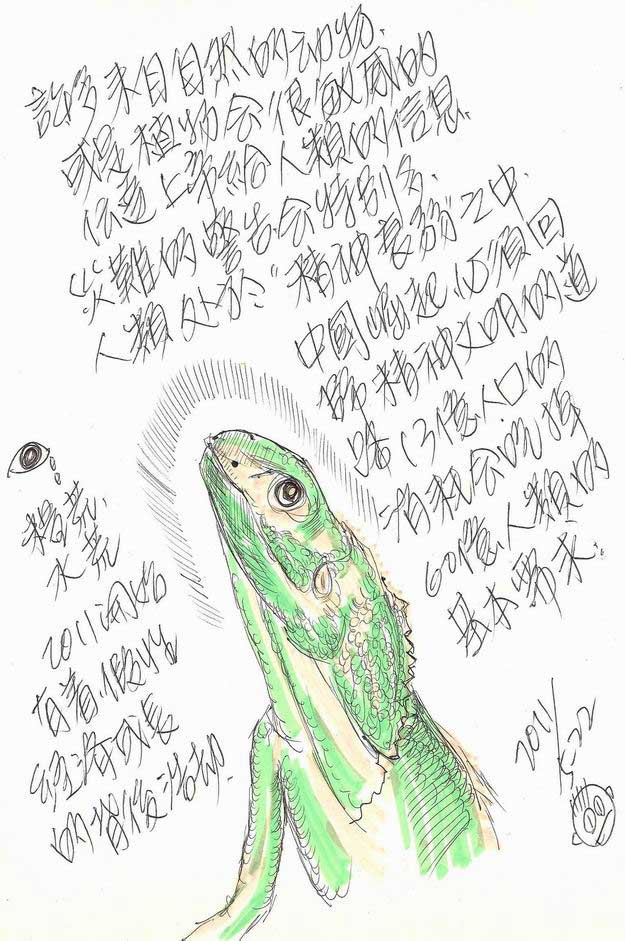 許多來自自然的动物.
或是植物会很敏感的
传達上帝給人類的信息.
災難的警告会特别多.
人類处於"精神衰弱"之中.
中國崛起.必須回
歸精神文明的道
路.13億人口的
消耗会吃掉
60億人類的
基本需求.
糧荒.
水荒
2011開始
有着假性
經済成長
的背後浩劫.
2011/5-22